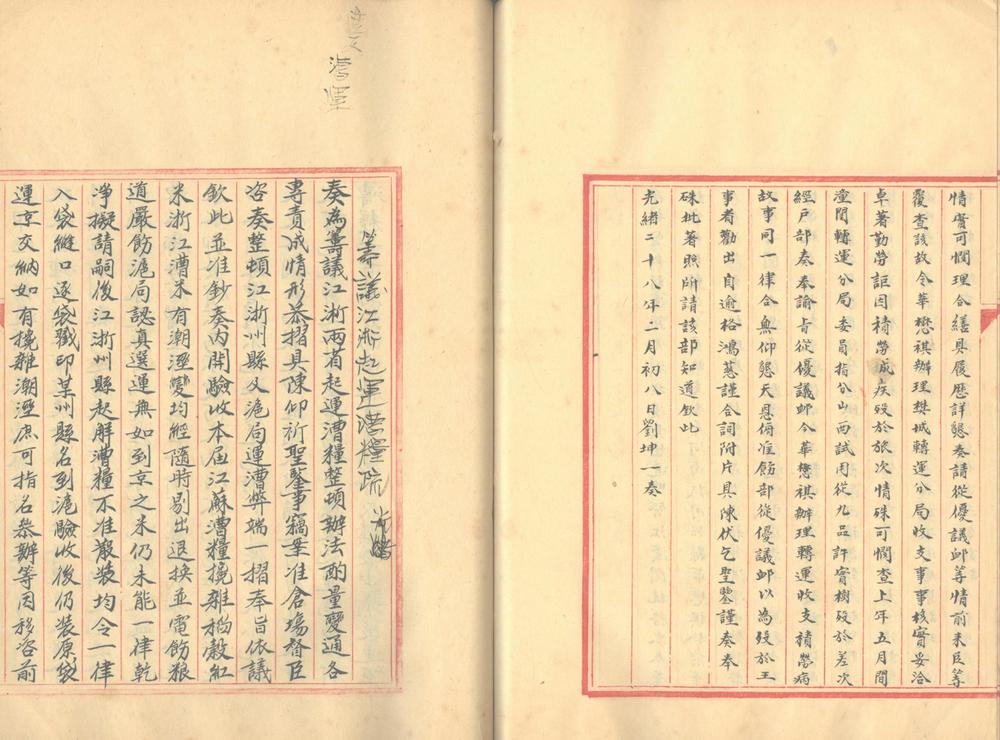 情實可憫理合繕具履歷詳懇奏請從優議卹等情前來臣等
覆查該故令華懋祺辦理樊城轉運分局收支事事核實妥洽
卓著勤勞詎因積勞成疾歿於旅次情殊可憫查上年五月間
潼關轉運分局委員指分山西試用從九品許寶樹歿於差次
經戶部奏奉諭旨從優議卹今華懋祺辦理轉運收支積勞病
故事同一律合無仰懇天恩俯准飭部從優議卹以為歿於王
事者勸出自逾格鴻慈謹合詞附片具陳伏乞聖鑒謹奏奉
硃批著照所請該部知道欽此
光緒二十八年二月初八日劉坤一奏
漕運
籌議江浙起運漕糧疏
奏為籌議江浙兩省起運漕糧整頓辦法酌量變通各
專責成情形恭摺具陳仰祈聖鑒事竊業准倉場督臣
咨奏整頓江浙州縣及滬局運漕弊端一摺奉旨依議
欽此並准鈔奏內開驗收本屆江蘇漕糧攙雜稻穀紅
米浙江漕米有潮溼變均經隨時剔出退換並電飭糧
道嚴飭滬局認真選運無如到京之米仍未能一律乾
淨擬請嗣後江浙州縣起解漕糧不准散裝均令一律
入袋縫口逐袋戳印某州縣名到滬驗收後仍裝原袋
運京交納如有攙雜潮溼庶可指名參辦等因移咨前